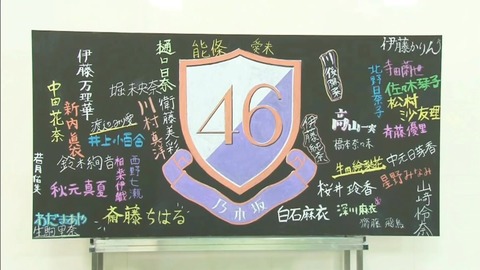 伊藤万理華
中田花奈
新内眞衣
若月佑美
鈴木絢音
秋元真夏
生駒里奈
樋口日奈
堀未央奈
渡辺みり愛
井上小百合
相楽伊織
西野七瀬
斎藤ちはる
能條
愛未
衛藤美彩
川村真洋
46
乃木坂
川後陽菜
伊藤純奈
伊藤かりん
寺田蘭世
北野日奈子
佐々木琴子
松村
沙友理
斉藤優里
高山一実
橋本奈々未
中元日芽香
生田絵梨花
星野みなみ
桜井玲香
山崎怜奈
白石麻衣
深川麻衣
齋藤飛鳥